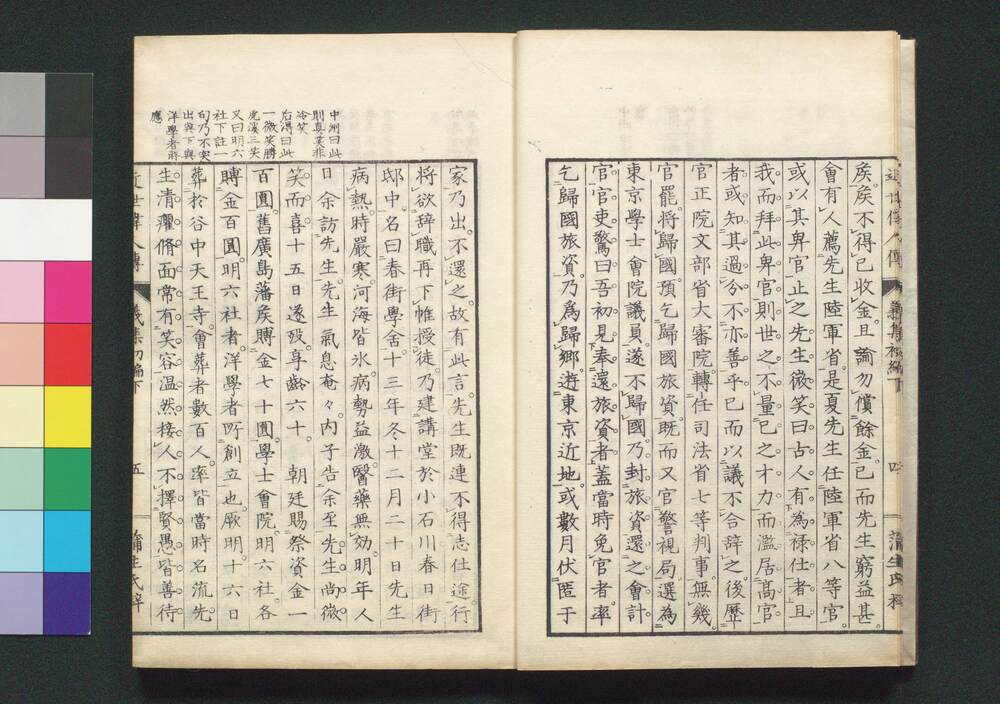 矦矦不得已收金且諭勿償餘金已而先生窮益甚
會有人薦先生陸軍省是夏先生任陸軍省八等官
或以其卑官止之先生微笑曰古人有為祿仕者且
我而拜此卑官則世之不量已之才力而濫居髙官
者或知其過分不亦善乎已而以議不合辞之後歷
官正院文部省大審院轉任司法省七等判事無幾
官罷將歸國預乞歸國旅資既而又官警視局選為
東京學士會院議員遂不歸國乃封旅資還之會計
官官吏驚曰吾初見奉還旅資者蓋當時免官者率
乞歸國旅資乃為歸郷遊東京近地或數月伏匿于
家乃出不還之故有此言先生既連不得志仕途行
將欲辞職再下帷授徒乃建講堂於小石川春日街
邸中名曰春街學舍十三年冬十二月二十日先生
病熱時嚴寒河海皆氷病勢益激醫藥無効明年人
日余訪先生先生氣息奄々内子告余至先生尚微
笑而喜十五日遂歿享齡六十朝廷賜祭資金一
百圓舊廣島藩矦賻金七十圓學士會院明六社各
賻金百圓明六社者洋學者所創立也厥明十六日
葬於谷中天王寺會葬者數百人率皆當時名流先
生清癯脩面常有笑容温然接人不擇賢愚皆善待
中洲曰此
則真笑非
冷笑
后得曰此
一微笑勝
虎溪三笑
又曰明六
社下註一
句乃不突
出與下與
洋學者將
應
近世偉人傳 義集初編下 五 蒲生氏梓